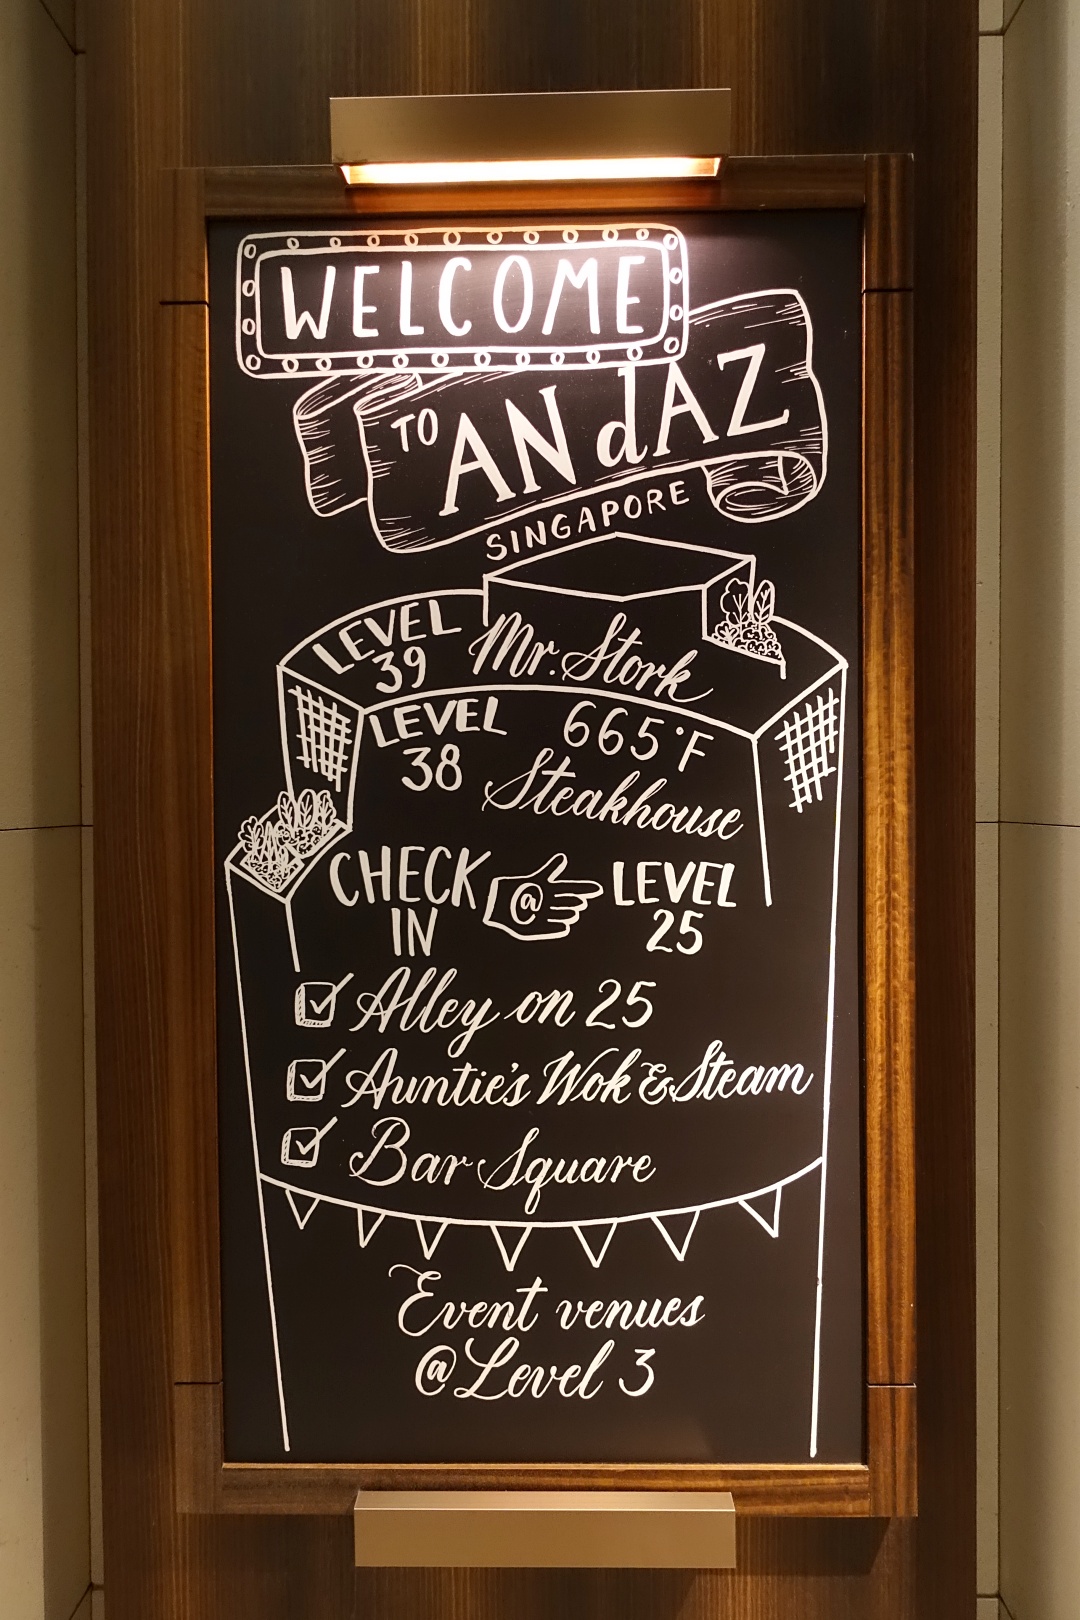 WELCOME
TO ANdAZ
SINGAPORE
LEVEL 39 Mr. Stork
LEVEL 38 665°F Steakhouse
CHECK IN @ LEVEL 25
Alley on 25
Auntie's Wok & Steam
Bar Square
Event venues
@Level 3